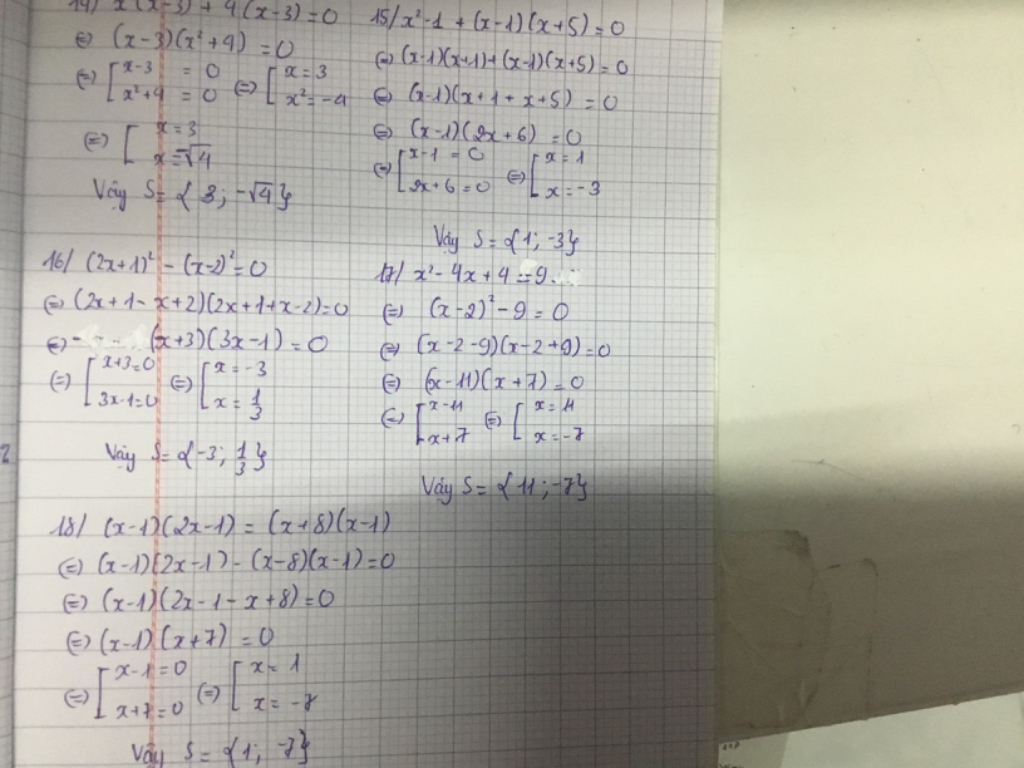 14) x²(x-3) + 4(x-3) = 0
⇔ (x-3)(x²+4) = 0
⇔ [ x-3 = 0 ⇔ [ x = 3
x²+4 = 0 x² = -4
⇔ [ x = 3
x = -√4
Vậy S = {3; -√4}
15/ x²-1 + (x-1)(x+5) = 0
⇔ (x-1)(x+1)+(x-1)(x+5) = 0
⇔ (x-1)(x+1+x+5) = 0
⇔ (x-1)(2x+6) = 0
⇔ [ x-1 = 0 ⇔ [ x = 1
2x+6 = 0 x = -3
Vậy S = {1; -3}
16/ (2x+1)² - (x-2)² = 0
⇔ (2x+1-x+2)(2x+1+x-2) = 0
⇔ (x+3)(3x-1) = 0
⇔ [ x+3=0 ⇔ [ x = -3
3x-1=0 x = 1/3
Vậy S = {-3; 1/3}
17/ x²-4x+4 = 9
⇔ (x-2)² - 9 = 0
⇔ (x-2-9)(x-2+9) = 0
⇔ (x-11)(x+7) = 0
⇔ [ x-11 ⇔ [ x = 11
x+7 x = -7
Vậy S = {11; -7}
18/ (x-1)(2x-1) = (x+8)(x-1)
⇔ (x-1)(2x-1) - (x-8)(x-1) = 0
⇔ (x-1)(2x-1-x+8) = 0
⇔ (x-1)(x+7) = 0
⇔ [ x-1 = 0 ⇔ [ x = 1
x+7 = 0 x = -7
Vậy S = {1; -7}